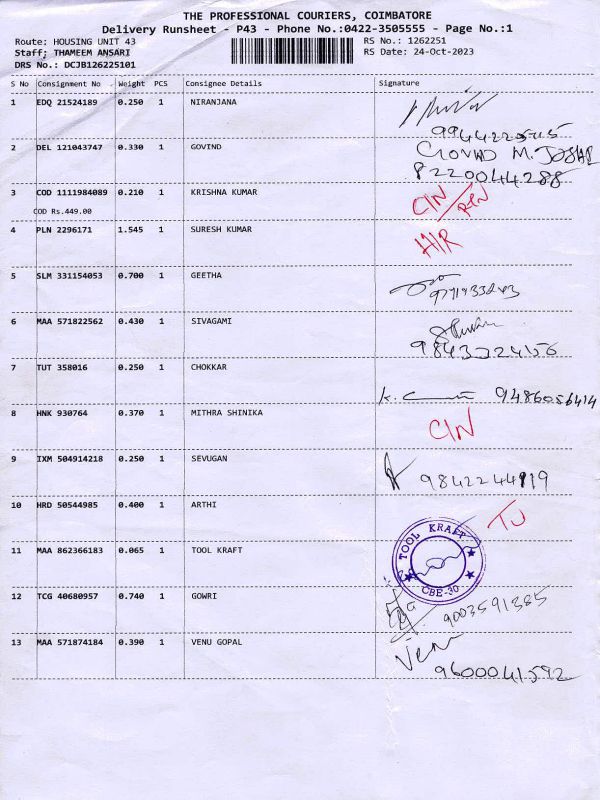 THE PROFESSIONAL COURIERS, COIMBATORE
Delivery Runsheet - P43 - Phone No.:0422-3505555 - Page No.:1
Route: HOUSING UNIT 43 RS No.: 1262251
Staff; THAMEEM ANSARI RS Date: 24-Oct-2023
DRS No.: DCJB126225101
S No Consignment No Weight PCS Consignee Details Signature
1 EDQ 21524189 0.250 1 NIRANJANA
2 DEL 121043747 0.330 1 GOVIND
8220044288
3 COD 1111984089 0.210 1 KRISHNA KUMAR C/N
COD Rs.449.00
4 PLN 2296171 1.545 1 SURESH KUMAR
5 SLM 331154053 0.700 1 GEETHA
6 MAA 571822562 0.430 1 SIVAGAMI
7 TUT 358016 0.250 1 CHOKKAR
9486056414
8 HNK 930764 0.370 1 MITHRA SHINIKA C/N
9 IXM 504914218 0.250 1 SEVUGAN
10 HRD 50544985 0.400 1 ARTHI
11 MAA 862366183 0.065 1 TOOL KRAFT TOOL KRAFT CBE-30
12 TCG 40680957 0.740 1 GOWRI
9003591385
13 MAA 571874184 0.390 1 VENU GOPAL Venu
9600041592